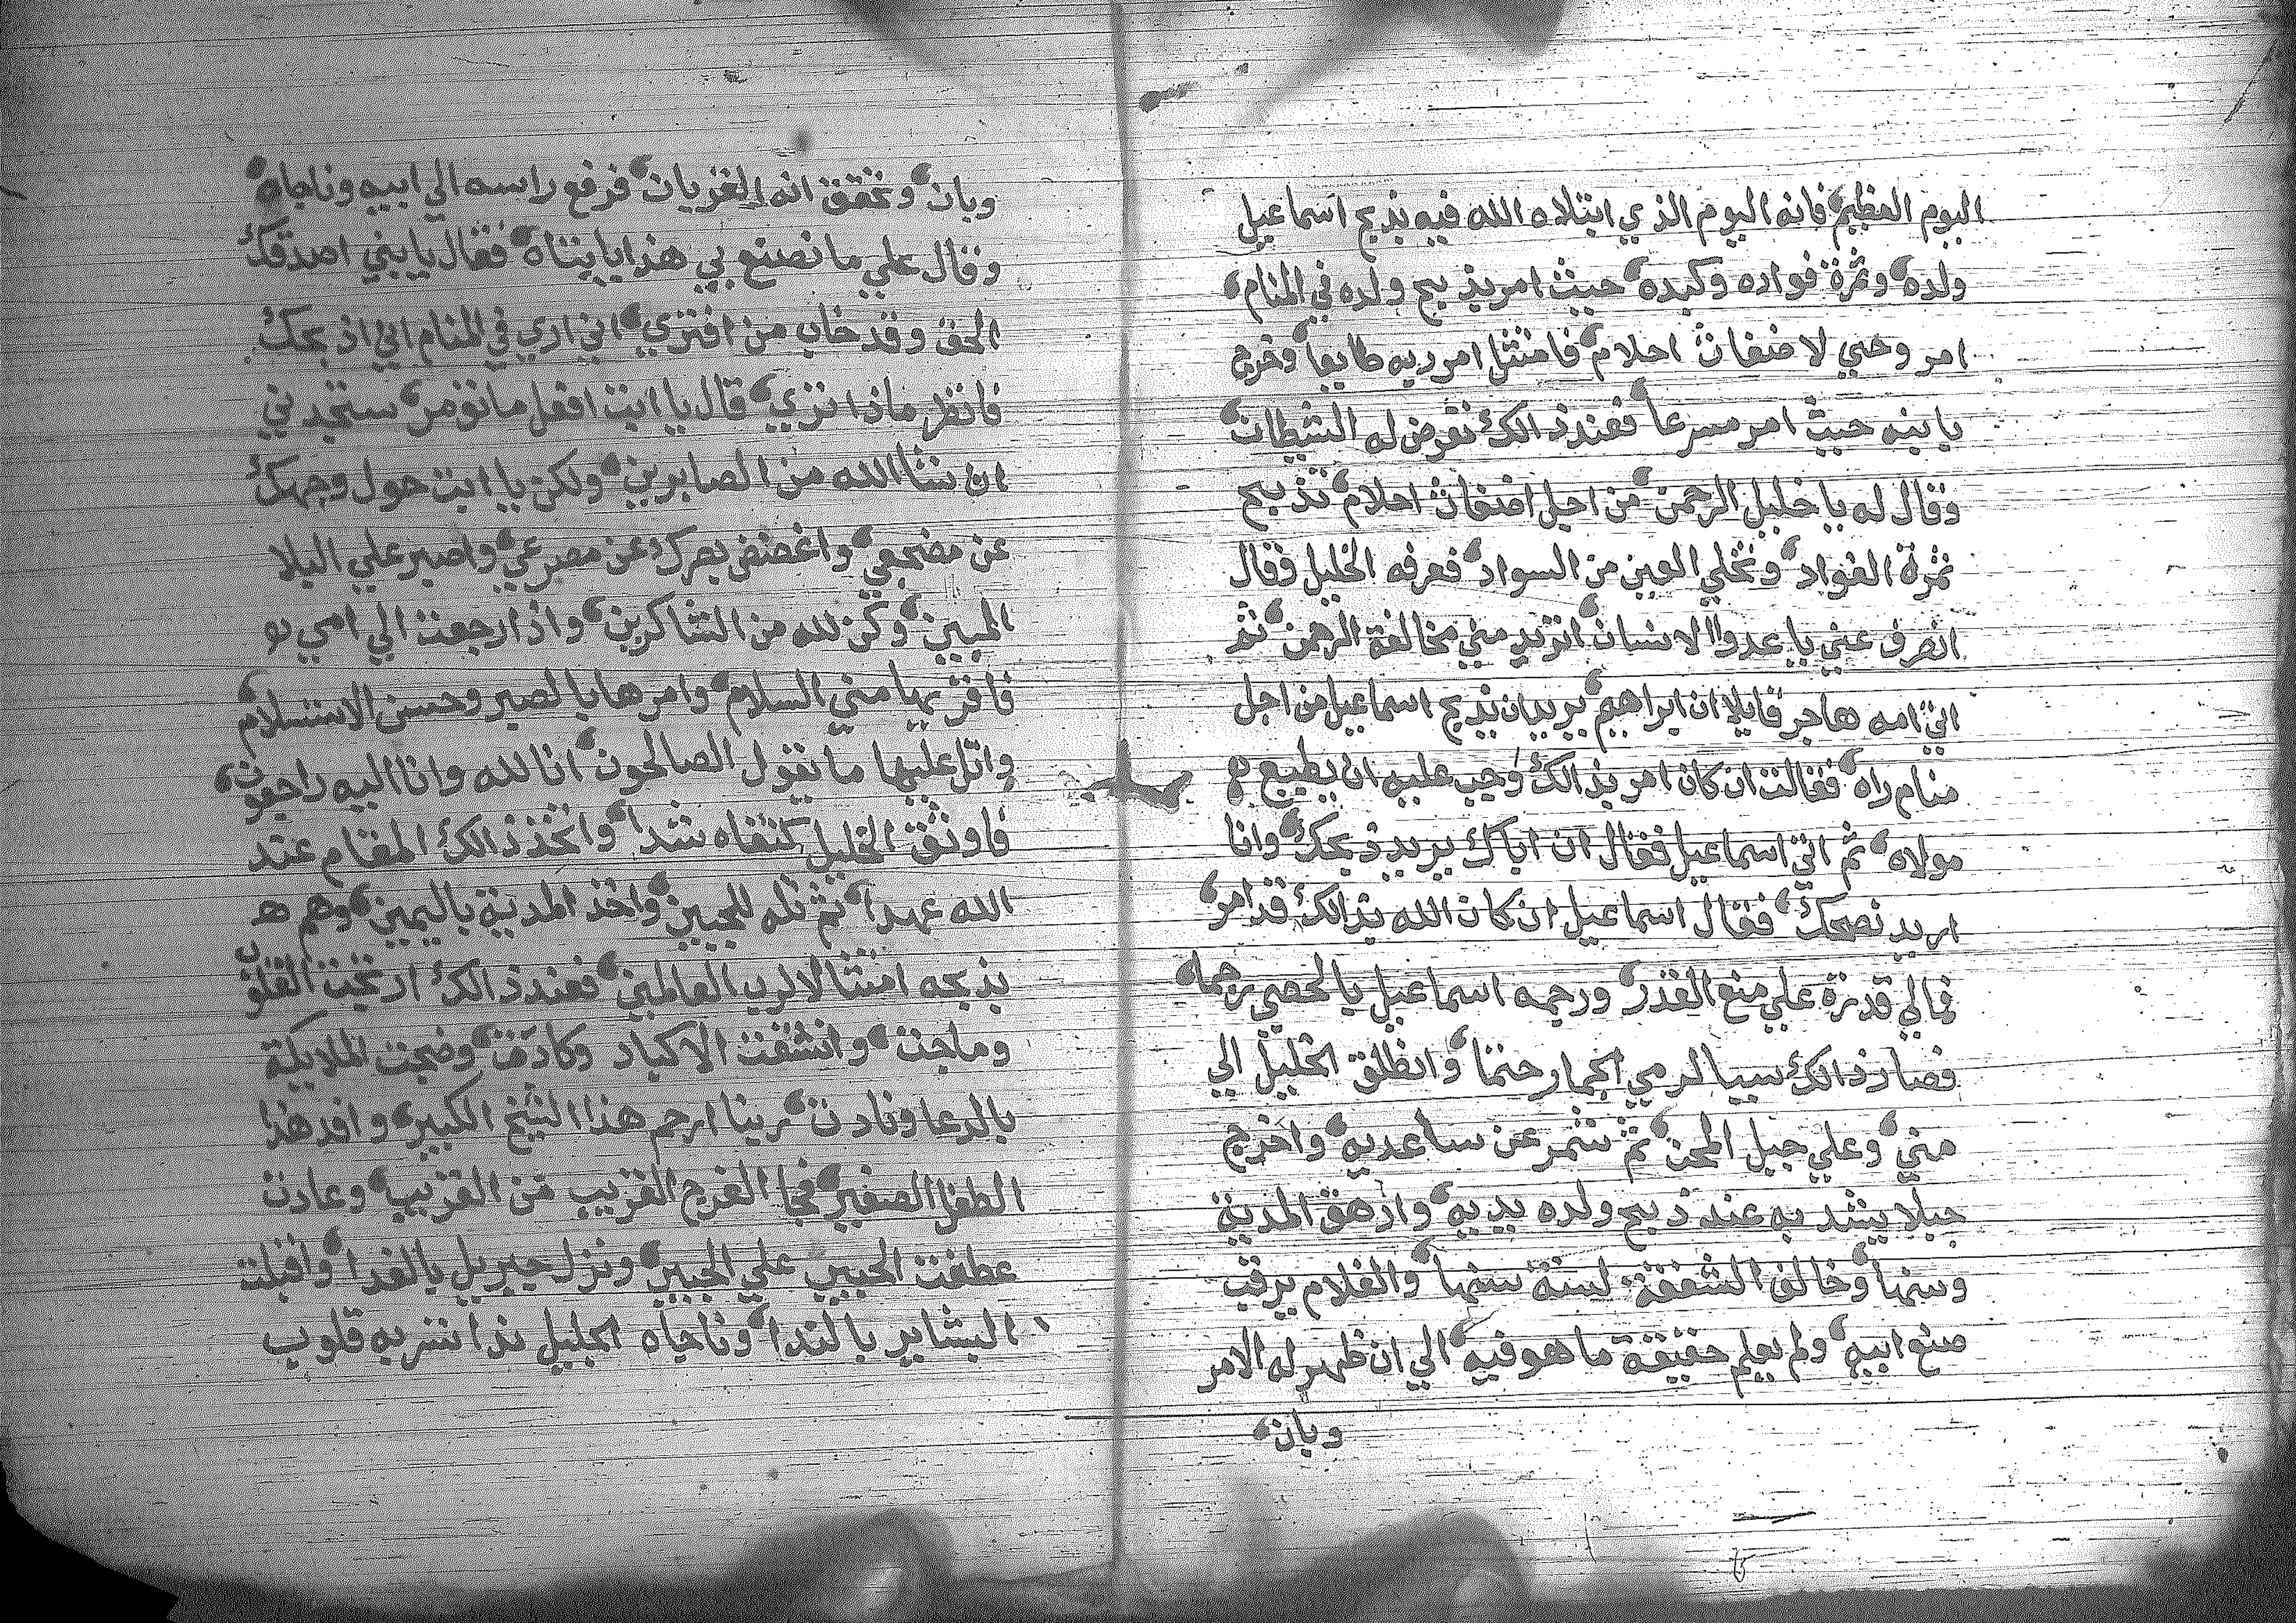 اليوم العظيم فانه اليوم الذي ابتلاه الله فيه بذبح اسماعيل
ولده وثمرة فواده وكبده حيث امر بذبح ولده في المنام
امر وحي لا ضغاث احلام فامتثل امر ربه طايعا وخرج
بابنه حيث امر مسرعا فعند ذالك تعرض له الشيطان
وقال له يا خليل الرحمن من اجل اضغاث احلام تذبح
ثمرة الفواد وتخلي العين من السواد فعرفه الخليل وقال
انصرف عني يا عدوا الانسان اتريد مني مخالفة الرحمن ثم
اتي امه هاجر قايلا ان ابراهيم يريد ان يذبح اسماعيل من اجل
منام راه فقالت ان كان امر بذالك وجب عليه ان يطيع
مولاه ثم اتي اسماعيل فقال ان اباك يريد ذبحك وانا
اريد نصحك فقال اسماعيل ان كان الله بذالك قد امر
فمالي قدرة علي منع القدر ورجمه اسماعيل بالحصي رجما
فصار ذالك سببا لرمي الجمار حتما وانطلق الخليل الي
مني وعلي جبل المحن ثم شمر عن ساعديه واخرج
حبلا يشد به عند ذبح ولده يديه وارهق المدية
وسنها وخالف الشفقة لسنة سنها والغلام يرقب
صنع ابيه ولم يعلم حقيقة ما هو فيه الي ان ظهر له الامر
وبان
وبان وتحقق انه القربان فرفع راسه الي ابيه وناجاه
وقال علي ما تصنع بي هذا يا ابتاه فقال يا بني اصدقك
الحق وقد خاب من افتري اني اري في المنام اني اذبحك
فانظر ماذا تري قال يا ابت افعل ما تومر ستجدني
ان شا الله من الصابرين ولكن يا ابت حول وجهك
عن مضجعي واغضض بصرك عن مصرعي واصبر علي البلا
المبين وكن لله من الشاكرين واذا رجعت الي امي
فاقريها مني السلام وامرها بالصبر وحسن الاستسلام
واتل عليها ما تقول الصالحون انا لله وانا اليه راجعون
فاوثق الخليل كتفاه شدا واتخذ ذالك المقام عند
الله عهدا ثم تله للجبين واخذ المدية باليمين وهم
بذبحه امتثالا لرب العالمين فعند ذالك ارتجت القلوب
وماجت وانشقت الاكباد وكادت وضجت الملايكة
بالدعا ونادت ربنا ارحم هذا الشيخ الكبير وافد هذا
الطفل الصغير فجا الفرج القريب من القريب وعادت
عطفت الحبيب علي الحبيب ونزل جبريل بالفدا واقبلت
البشاير بالندا وناجاه الجليل ندا سر به قلوب